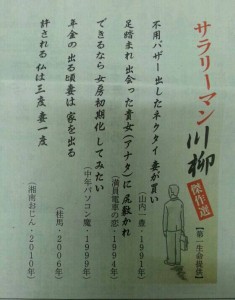 サラリーマン川柳
傑作選
【第一生命提供】
不用バザー 出したネクタイ 妻が買い
(山内一豊・1991年)
足踏まれ 出会った貴女(アナタ)に 尻敷かれ
(満員電車の恋・1994年)
できるなら 女房初期化 してみたい
(中年パソコン魔・1999年)
年金の 出る頃妻は 家を出る
(桂馬・2006年)
許される 仏は三度 妻一度
(湘南おじん・2010年)